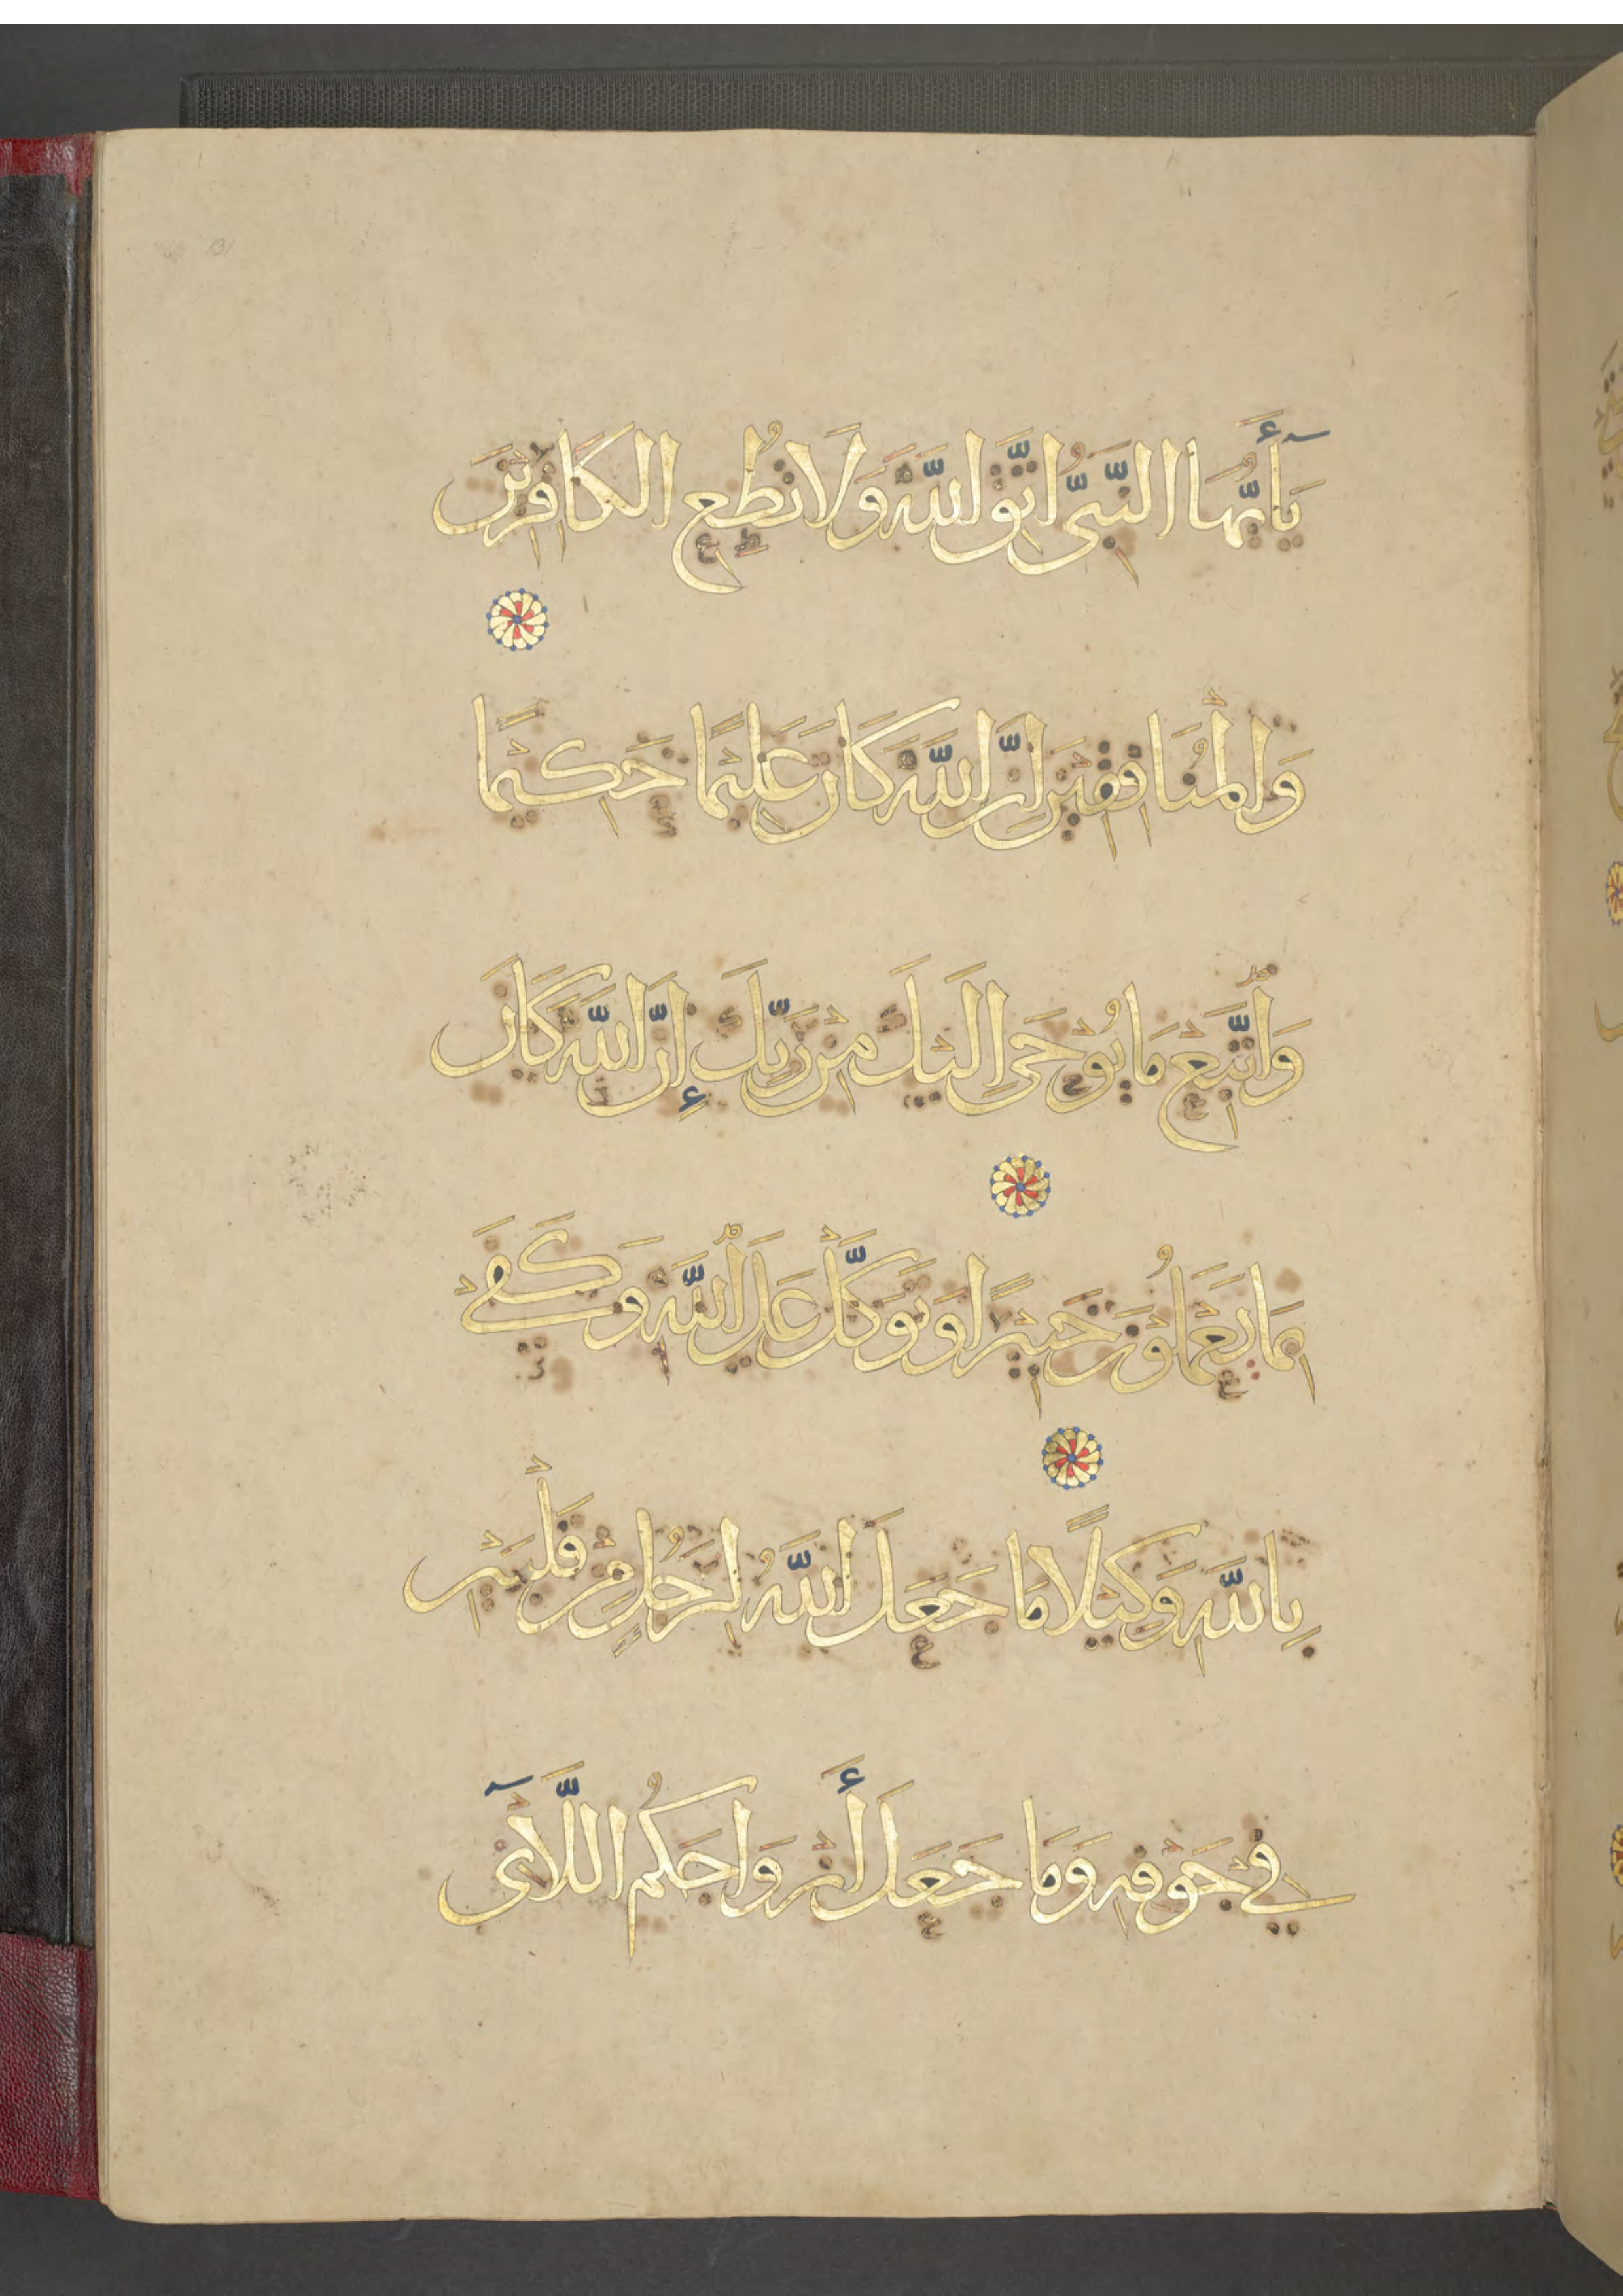 يَا أَيُّهَا النَّبِيُّ اتَّقِ اللَّهَ وَلَا تُطِعِ الْكَافِرِينَ
وَالْمُنَافِقِينَ إِنَّ اللَّهَ كَانَ عَلِيمًا حَكِيمًا
وَاتَّبِعْ مَا يُوحَى إِلَيْكَ مِنْ رَبِّكَ إِنَّ اللَّهَ كَانَ
بِمَا يَعْمَلُونَ خَبِيرًا وَتَوَكَّلْ عَلَى اللَّهِ وَكَفَى
بِاللَّهِ وَكِيلًا مَا جَعَلَ اللَّهُ لِرَجُلٍ مِنْ قَلْبَيْنِ
فِي جَوْفِهِ وَمَا جَعَلَ أَزْوَاجَكُمُ اللَّائِي